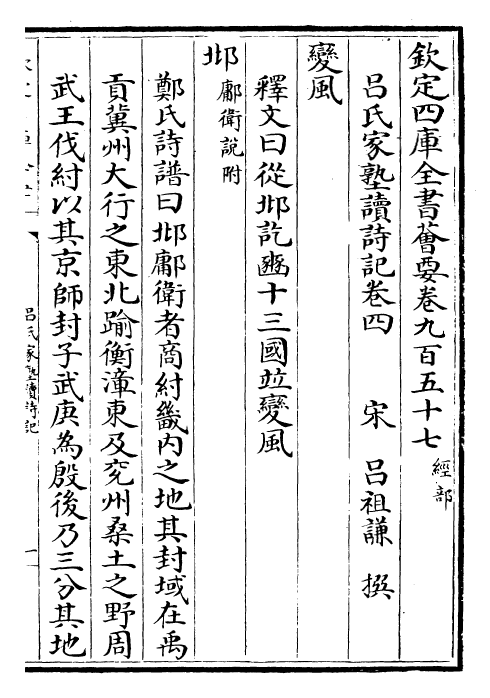 欽定四庫全書薈要卷九百五十七 經部
呂氏家塾讀詩記卷四 宋 呂祖謙 撰
變風
釋文曰從邶訖豳十三國並變風
邶 鄘衛說附
鄭氏詩譜曰邶鄘衛者商紂畿內之地其封域在禹
貢冀州大行之東北踰衡漳東及兖州桑土之野周
武王伐紂以其京師封子武庚為殷後乃三分其地
呂氏家塾讀詩記
一